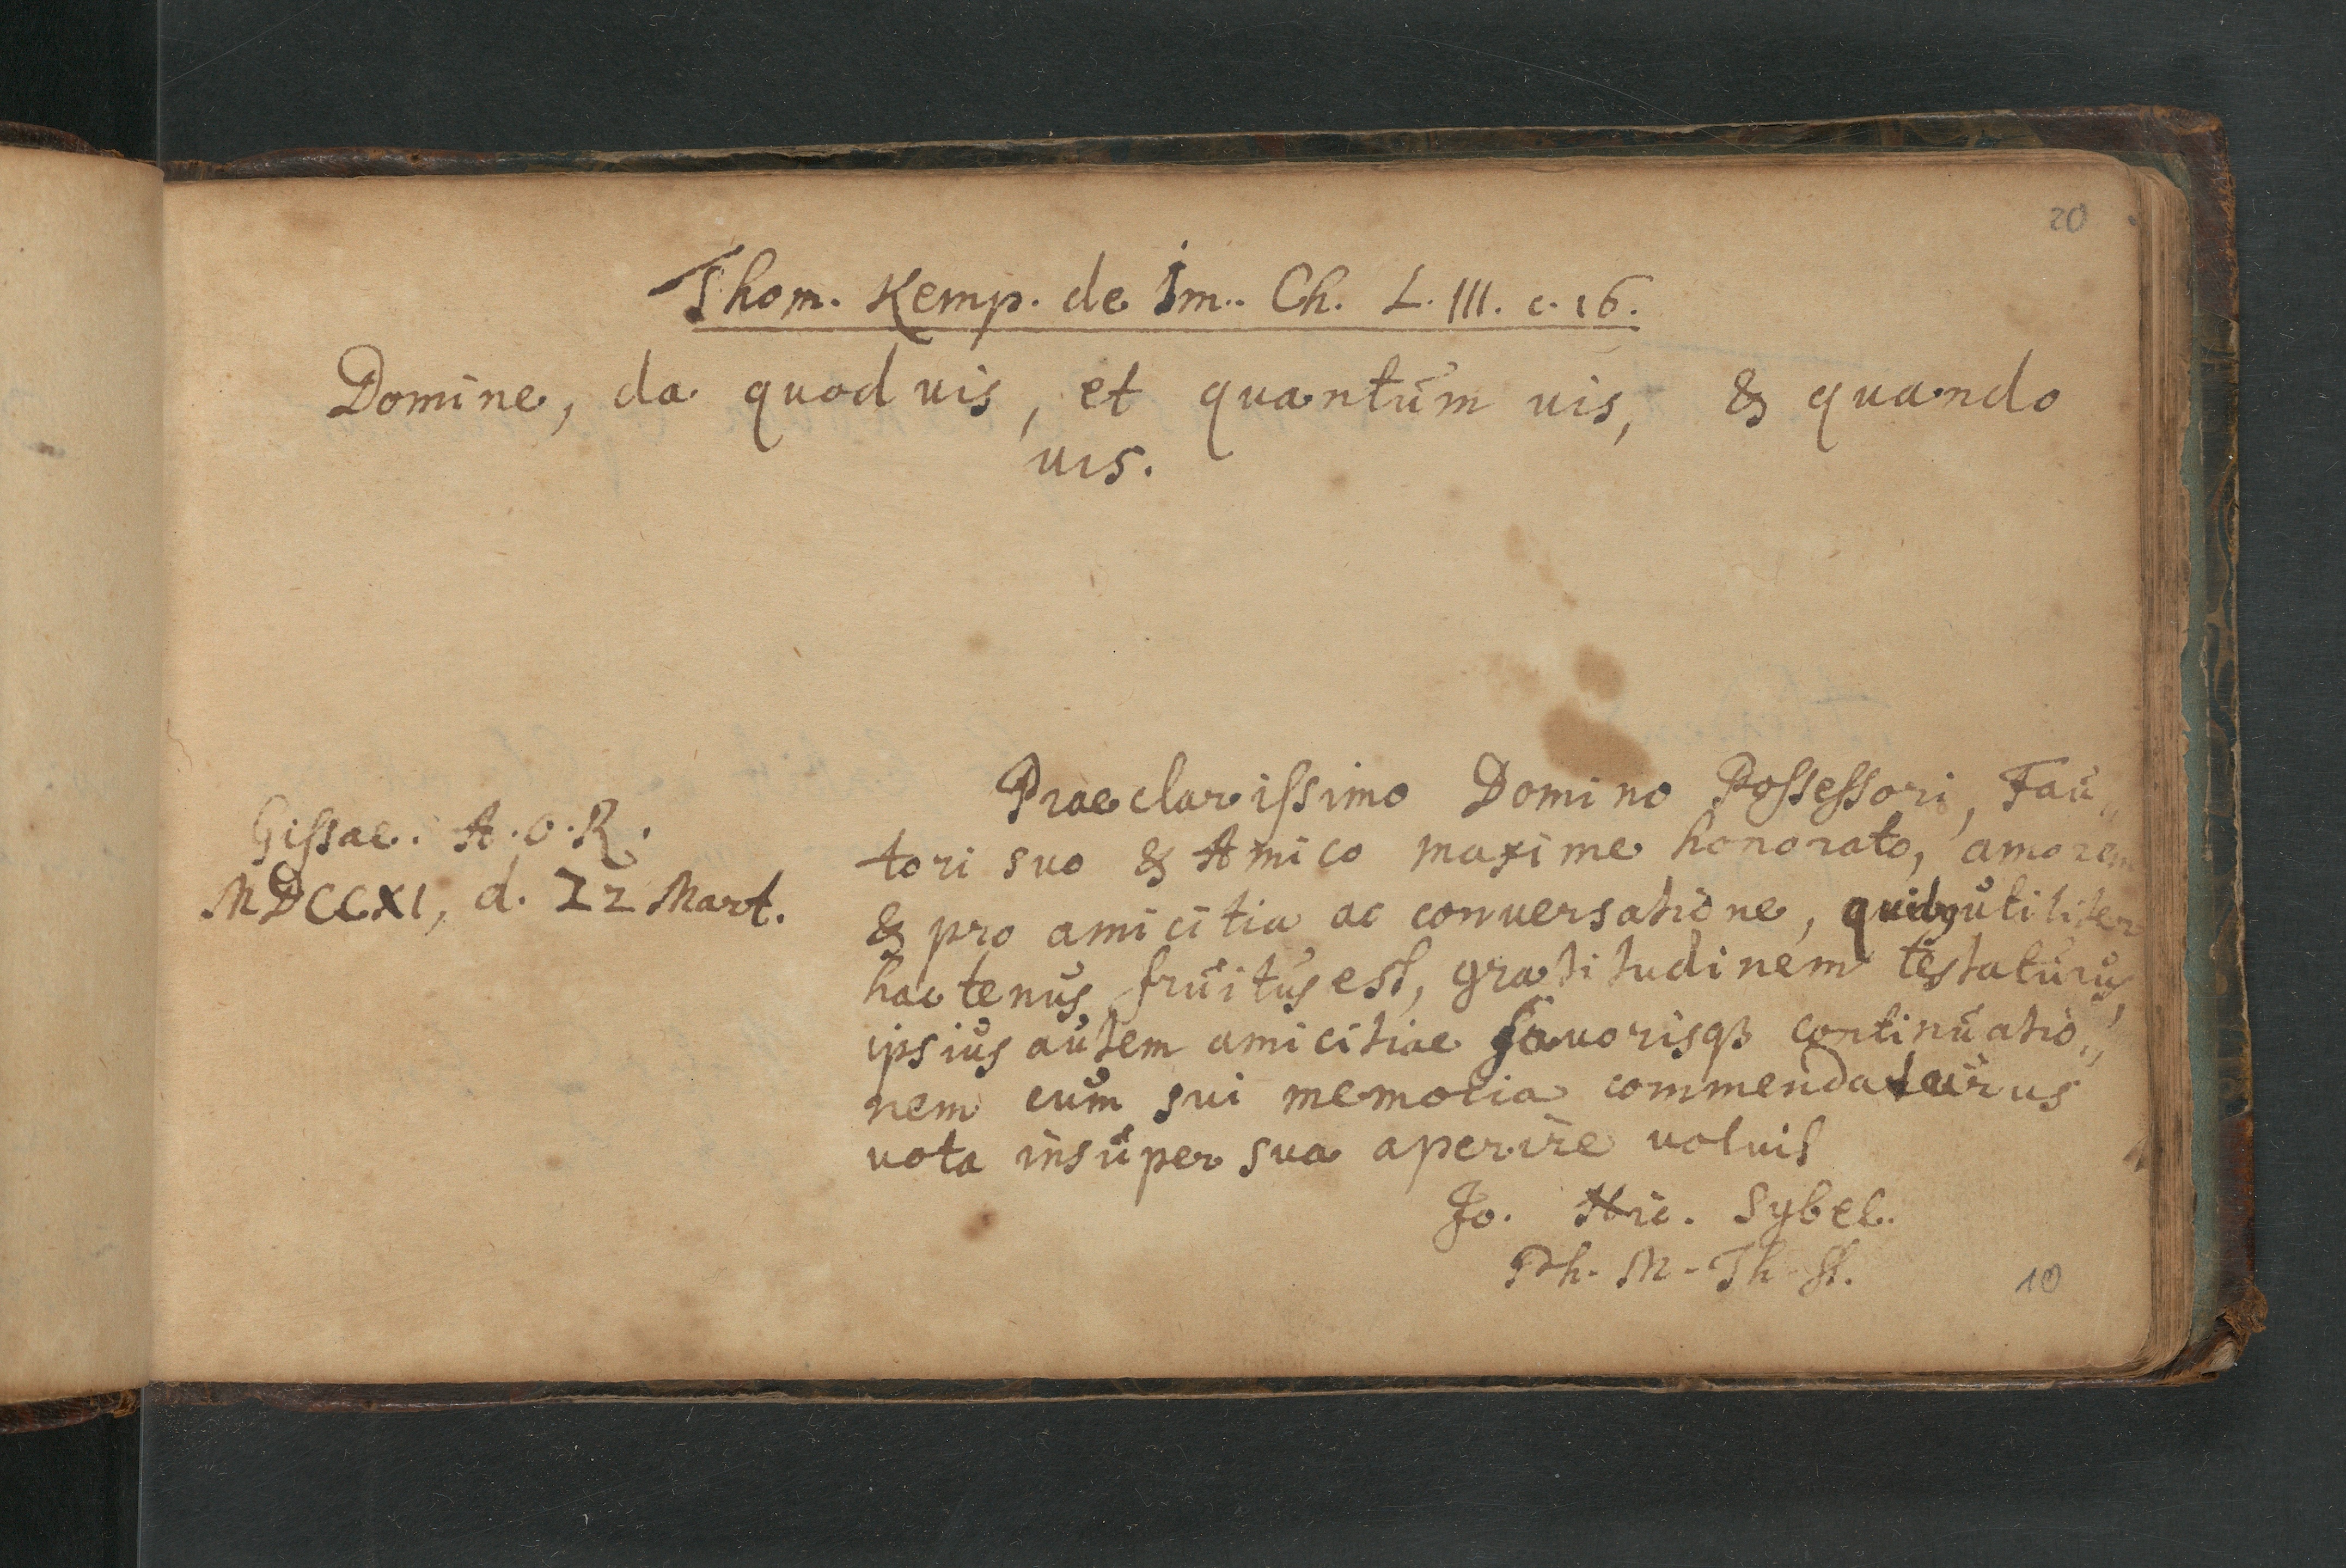 20
Thom. Kemp. de Im. Ch. L. III. c. 16.
Domine, da quod vis, et quantum vis, & quando
vis.
Gissae. A. O. R.
MDCCXI, d. 22 Mart.
Praeclarissimo Domino Possessori, Fau„
tori suo & Amico maxime honorato, amorem
& pro amicitia ac conversatione, quibus utiliter
hactenus fruitus est, gratitudinem testaturus,
ipsius autem amicitiae favorisq3 continuatio„
nem cum sui memoria commendaturus
vota insuper sua aperire voluit
Jo. Nic. Sybel.
Ph. M. Th. St.
10